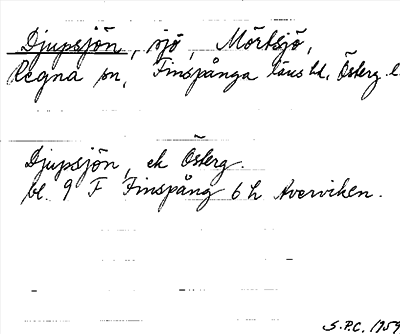 Djupsjön, sjö, Mörtsjö,
Regna sn, Finspånga läns hd, Österg. l.
Djupsjön, ek Österg.
bl. 9 F Finspång 6 h Averviken.
S.P.C. 1959